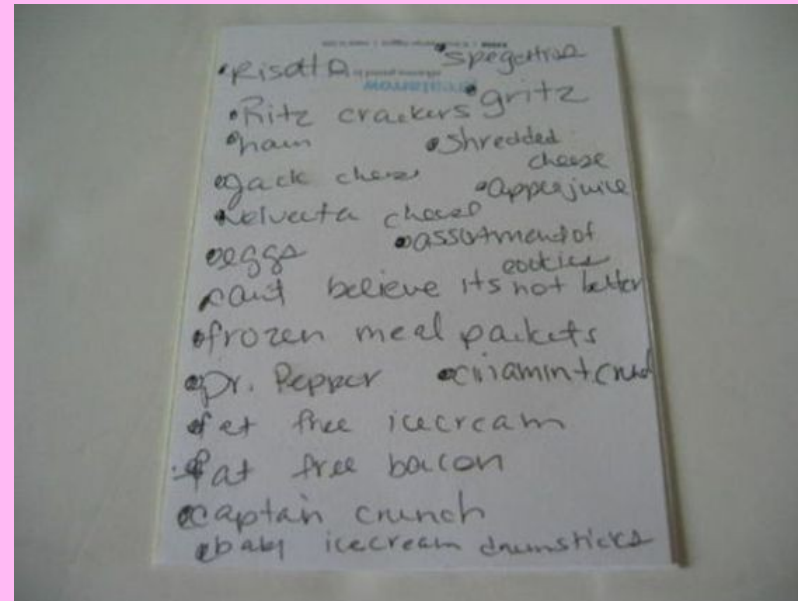 •Risotto
•spegettios
•Ritz crackers
•gritz
•ham
•shredded
cheese
•jack cheese
•apple juice
•velveeta cheese
•assortment of
cookies
•eggs
•cant believe its not butter
•frozen meal packets
•Dr. Pepper
•fat free icecream
•fat free bacon
•captain crunch
•baby icecream drumsticks